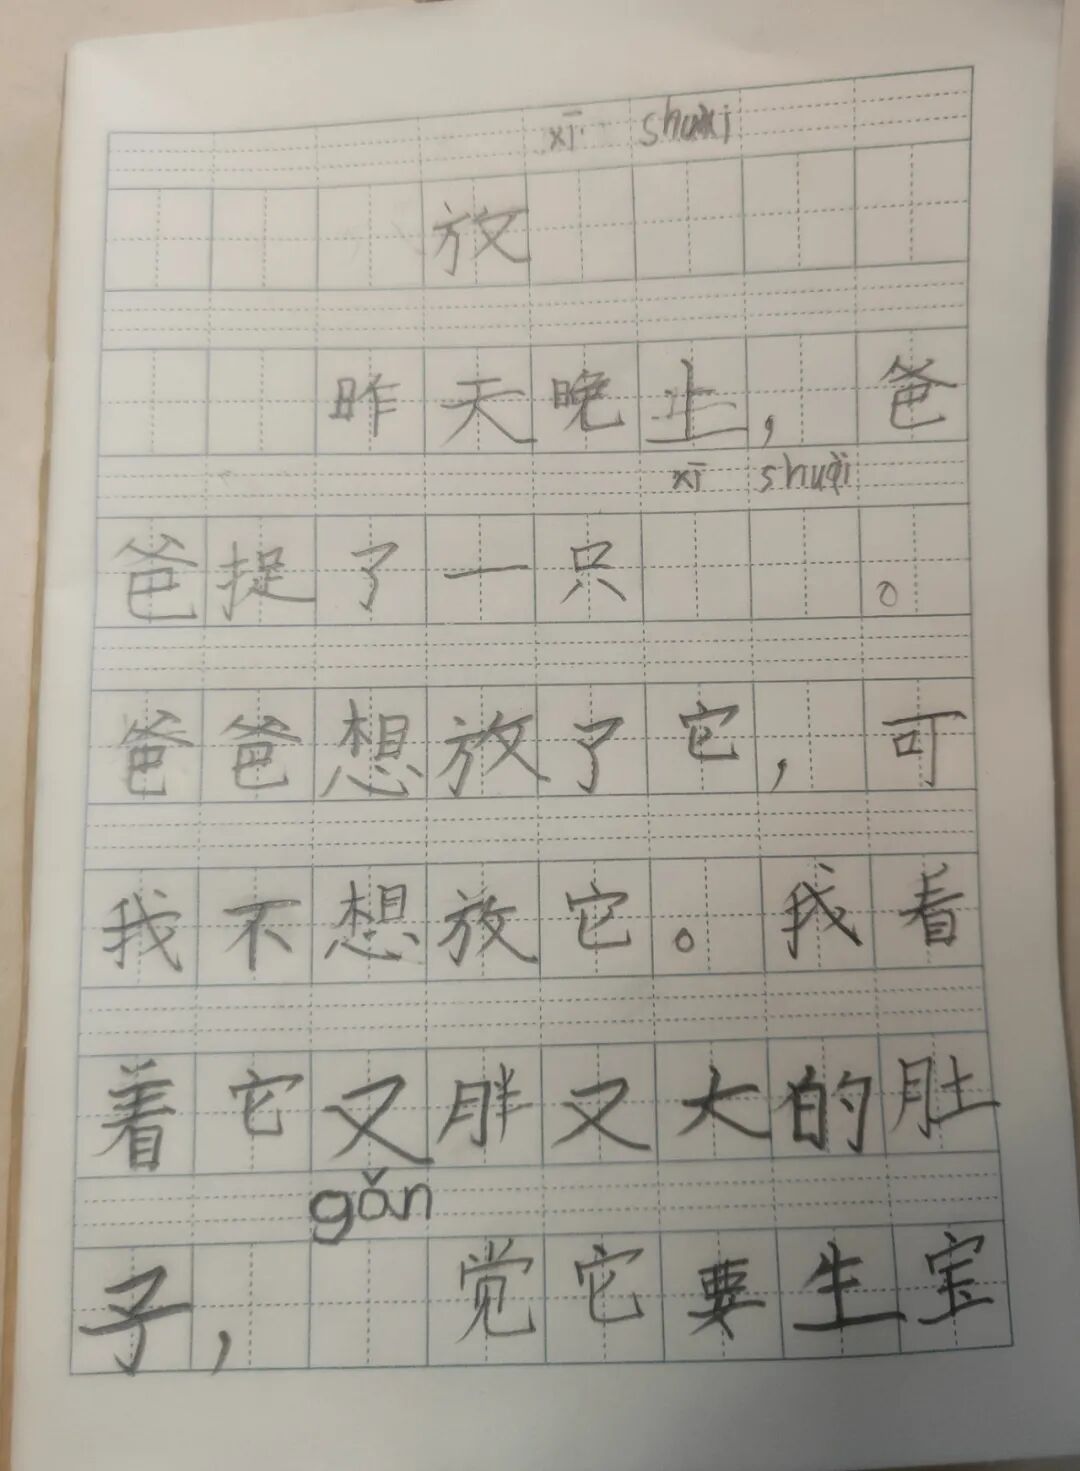 xī shuài
放
昨天晚上，爸
xī shuài
爸捉了一只。
爸爸想放了它，可
我不想放它。我看
着它又胖又大的肚
gǎn
子，觉它要生宝